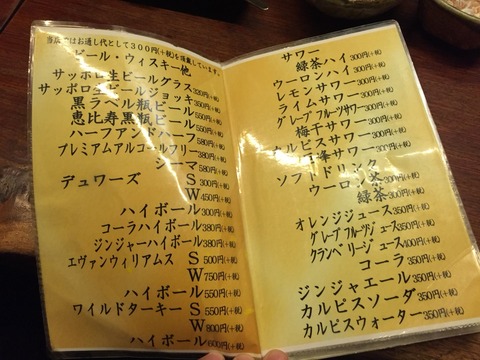 当店ではお通し代として300円(+税)を頂戴しています。
ビール・ウィスキー他
サッポロ生ビールグラス320円(+税)
サッポロ生ビールジョッキ350円(+税)
黒ラベル瓶ビール550円(+税)
恵比寿黒瓶ビール550円(+税)
ハーフアンドハーフ580円(+税)
プレミアムアルコールフリー380円(+税)
シーマ580円(+税)
デュワーズ S300円(+税)
W450円(+税)
ハイボール300円(+税)
コーラハイボール380円(+税)
ジンジャーハイボール380円(+税)
エヴァンウィリアムス S500円(+税)
W750円(+税)
ハイボール550円(+税)
ワイルドターキー S550円(+税)
W800円(+税)
ハイボール600円(+税)
サワー
緑茶ハイ300円(+税)
ウーロンハイ300円(+税)
レモンサワー300円(+税)
ライムサワー300円(+税)
グレープフルーツサワー300円(+税)
梅干サワー300円(+税)
カルピスサワー300円(+税)
巨峰サワー300円(+税)
ソフトドリンク
ウーロン茶300円(+税)
緑茶300円(+税)
オレンジジュース350円(+税)
グレープフルーツジュース350円(+税)
クランベリージュース400円(+税)
コーラ350円(+税)
ジンジャエール350円(+税)
カルピスソーダ350円(+税)
カルピスウォーター350円(+税)